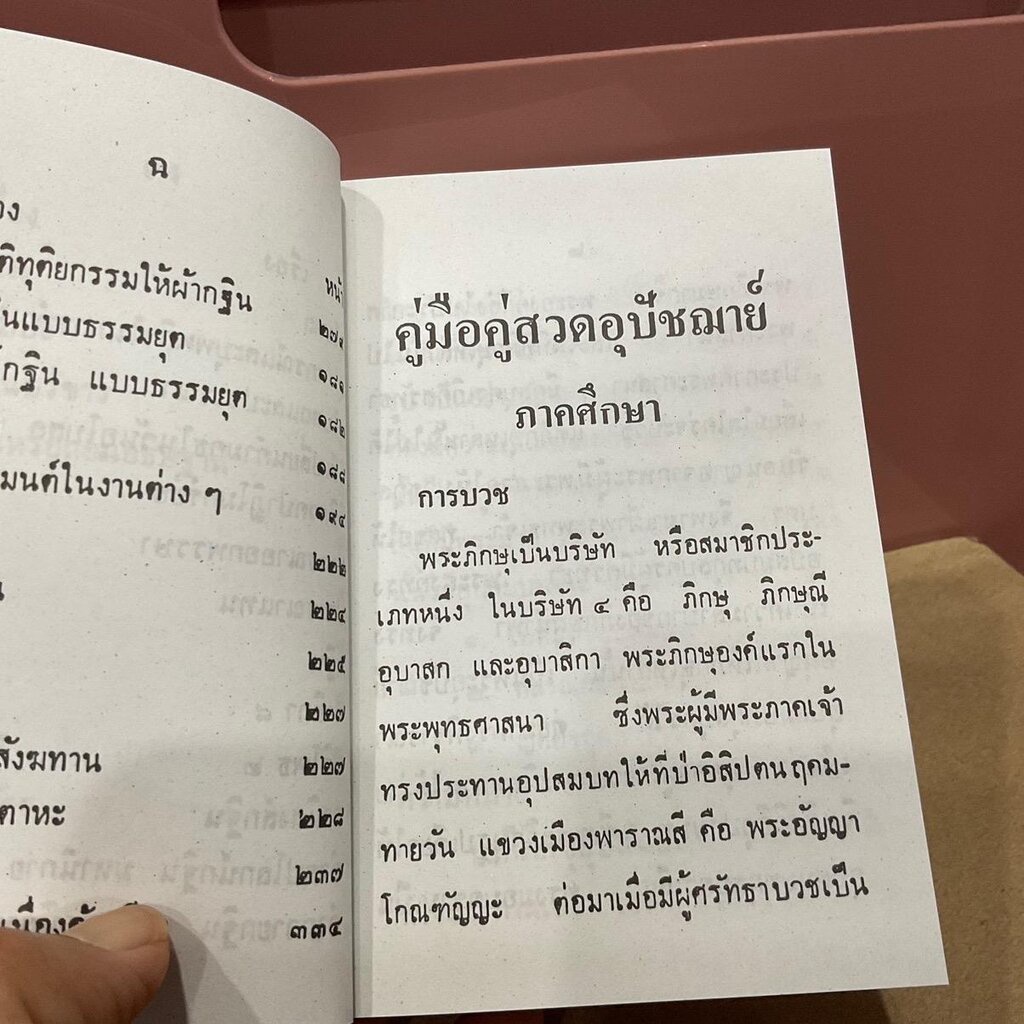 ฉ
หน้า
ติทุติยกรรมให้ผ้ากฐิน
นแบบธรรมยุต ๑๘๑
กฐิน แบบธรรมยุต ๑๘๒
๑๘๘
มนต์ในงานต่าง ๆ ๑๙๔
๒๒๒
๒๒๔
๒๒๕
๒๒๗
สังฆทาน ๒๒๗
ตาหะ ๒๒๘
๒๓๗
๓๓๔
คู่มือคู่สวดอุปัชฌาย์
ภาคศึกษา
การบวช
พระภิกษุเป็นบริษัท หรือสมาชิกประ-
เภทหนึ่ง ในบริษัท ๔ คือ ภิกษุ ภิกษุณี
อุบาสก และอุบาสิกา พระภิกษุองค์แรกใน
พระพุทธศาสนา ซึ่งพระผู้มีพระภาคเจ้า
ทรงประทานอุปสมบทให้ที่ป่าอิสิปตนฤคม-
ทายวัน แขวงเมืองพาราณสี คือ พระอัญญา
โกณฑัญญะ ต่อมาเมื่อมีผู้ศรัทธาบวชเป็น